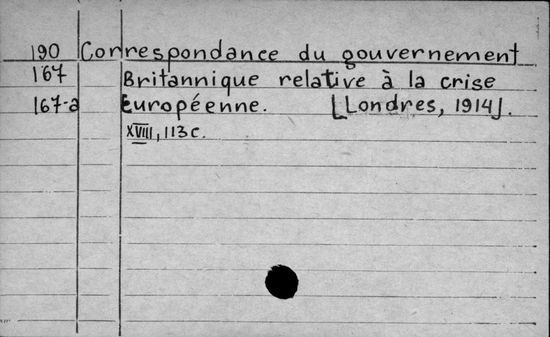 190 Correspondance du gouvernement
167 Britannique relative à la crise
167-a Européenne. [Londres, 1914].
XVIII, 113 c.